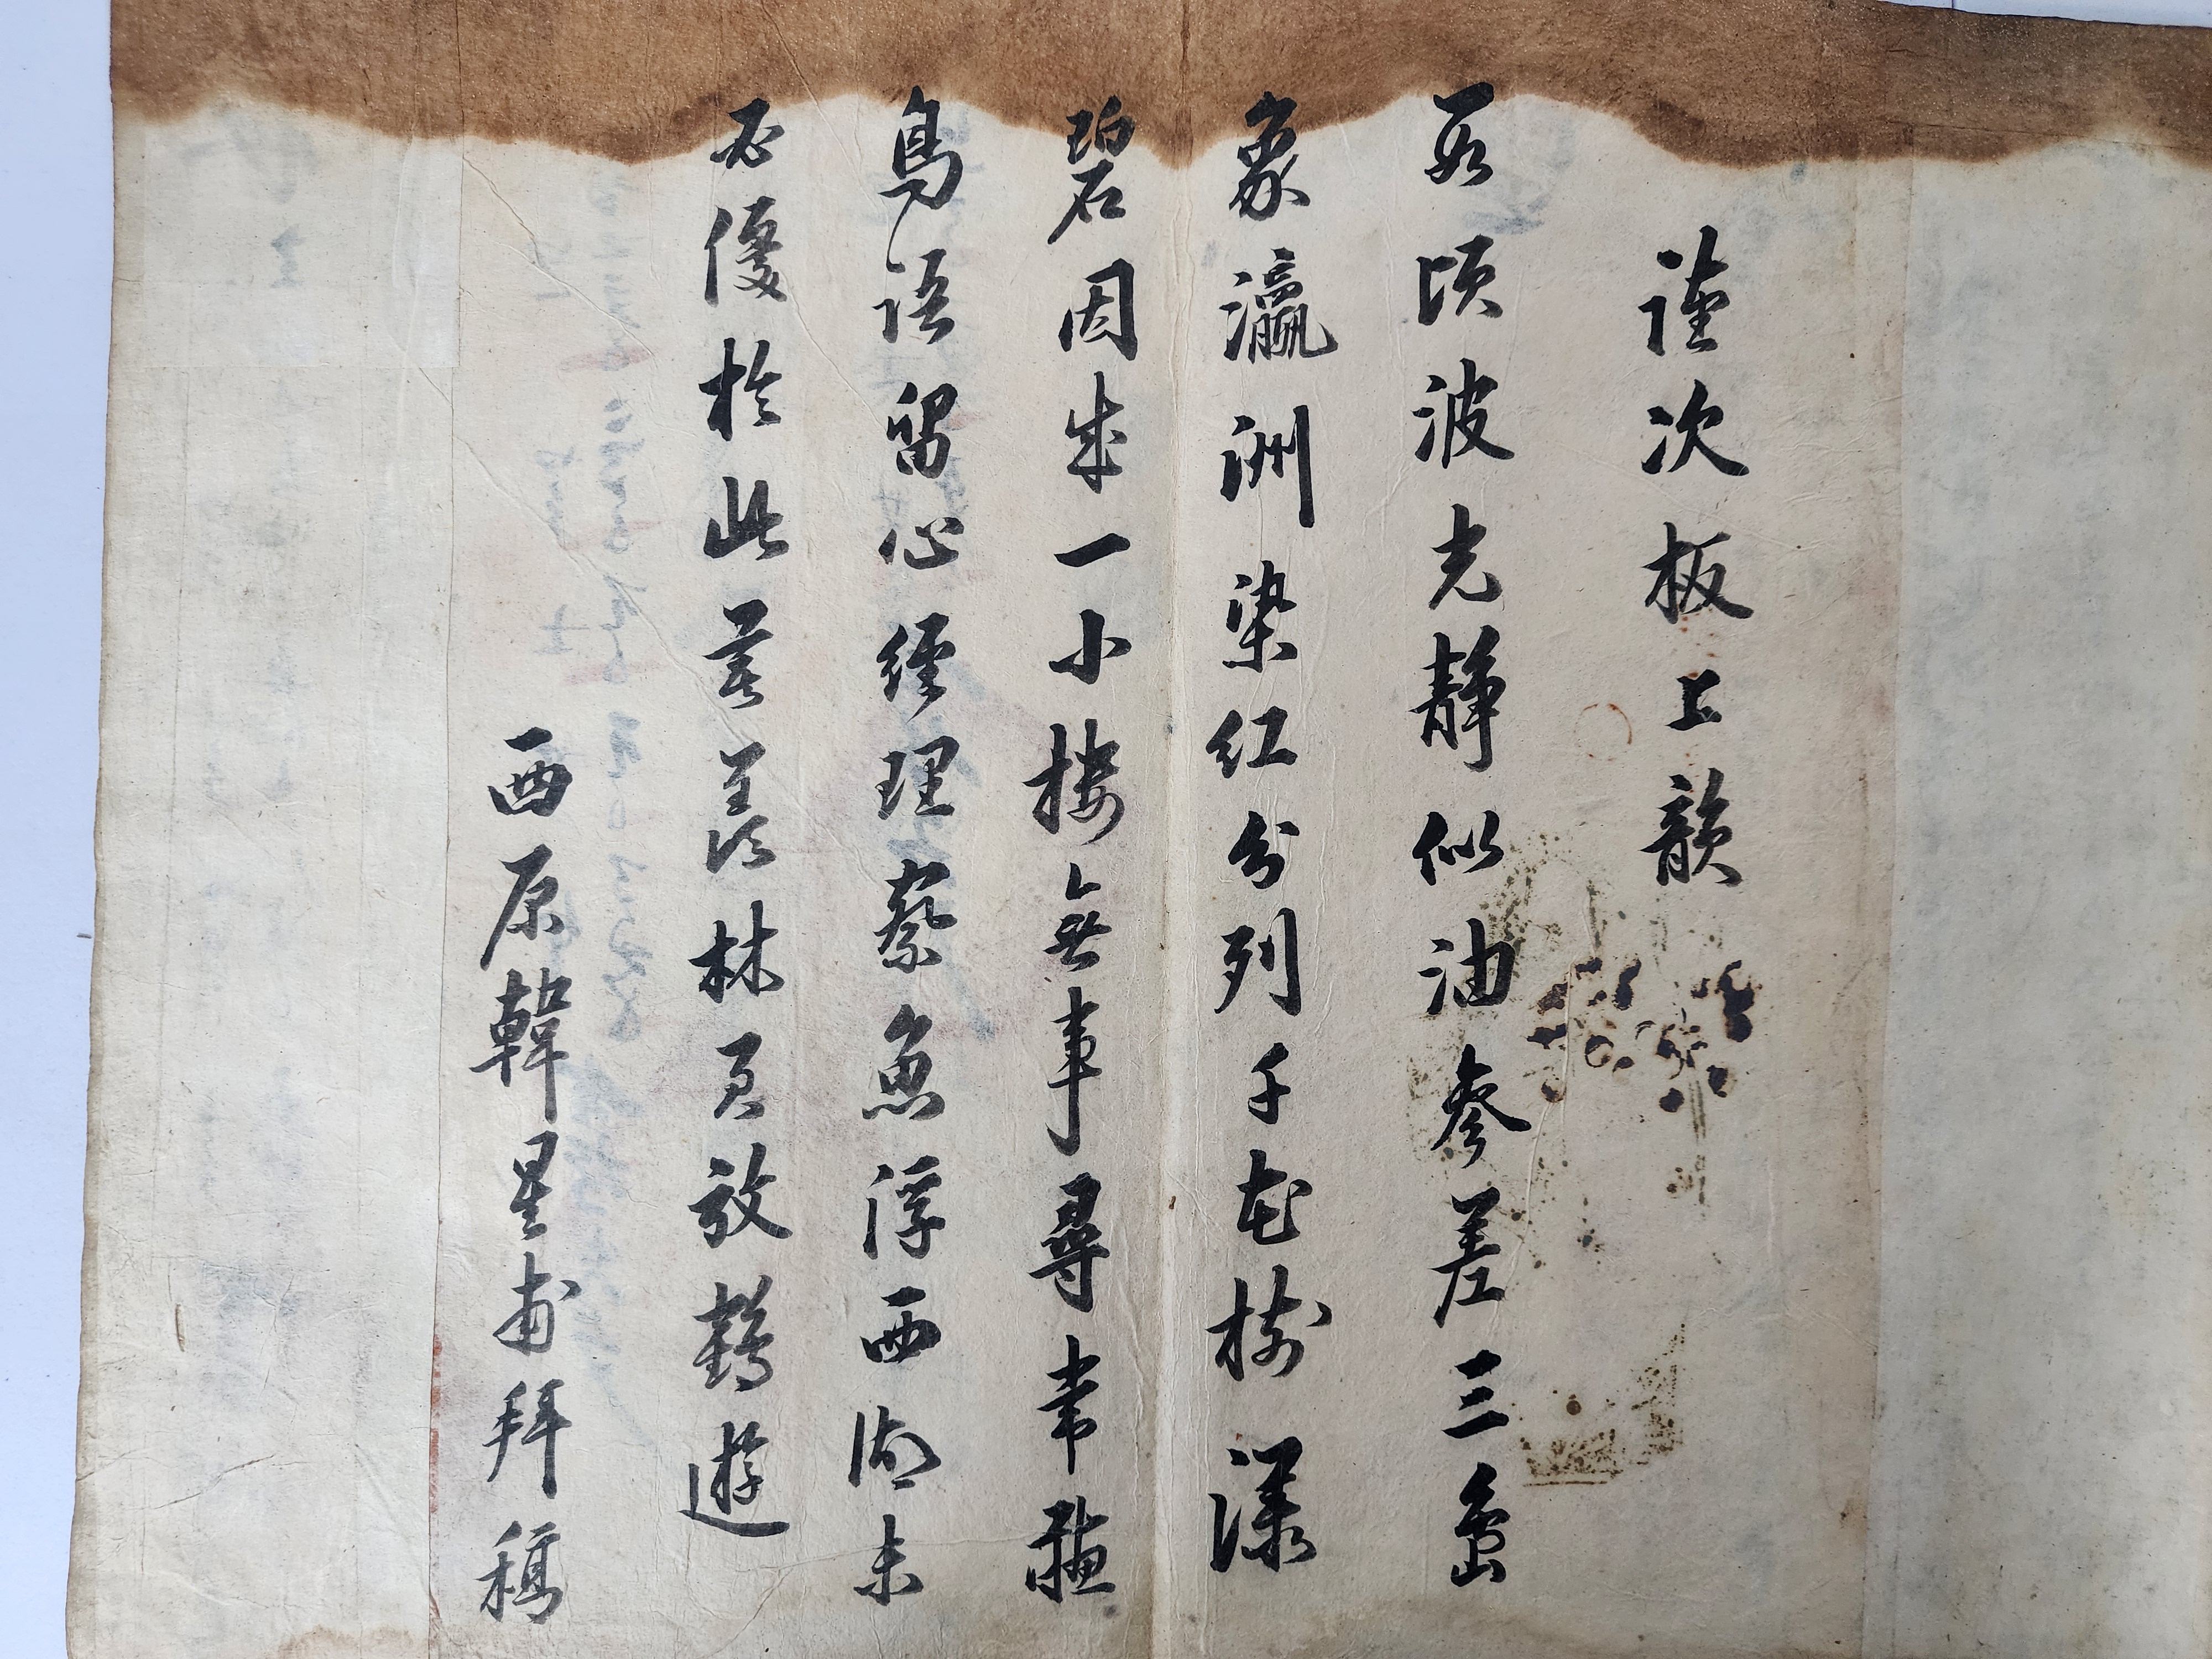 謹次板上韻
頃波光靜似油參差三島
象瀛洲染紅分列千花樹漾
碧因成一小樓無事尋常聽
鳥語留心經理察魚浮西湖未
必優於此莫羨林君放鶴遊
西原韓星甫拜稿